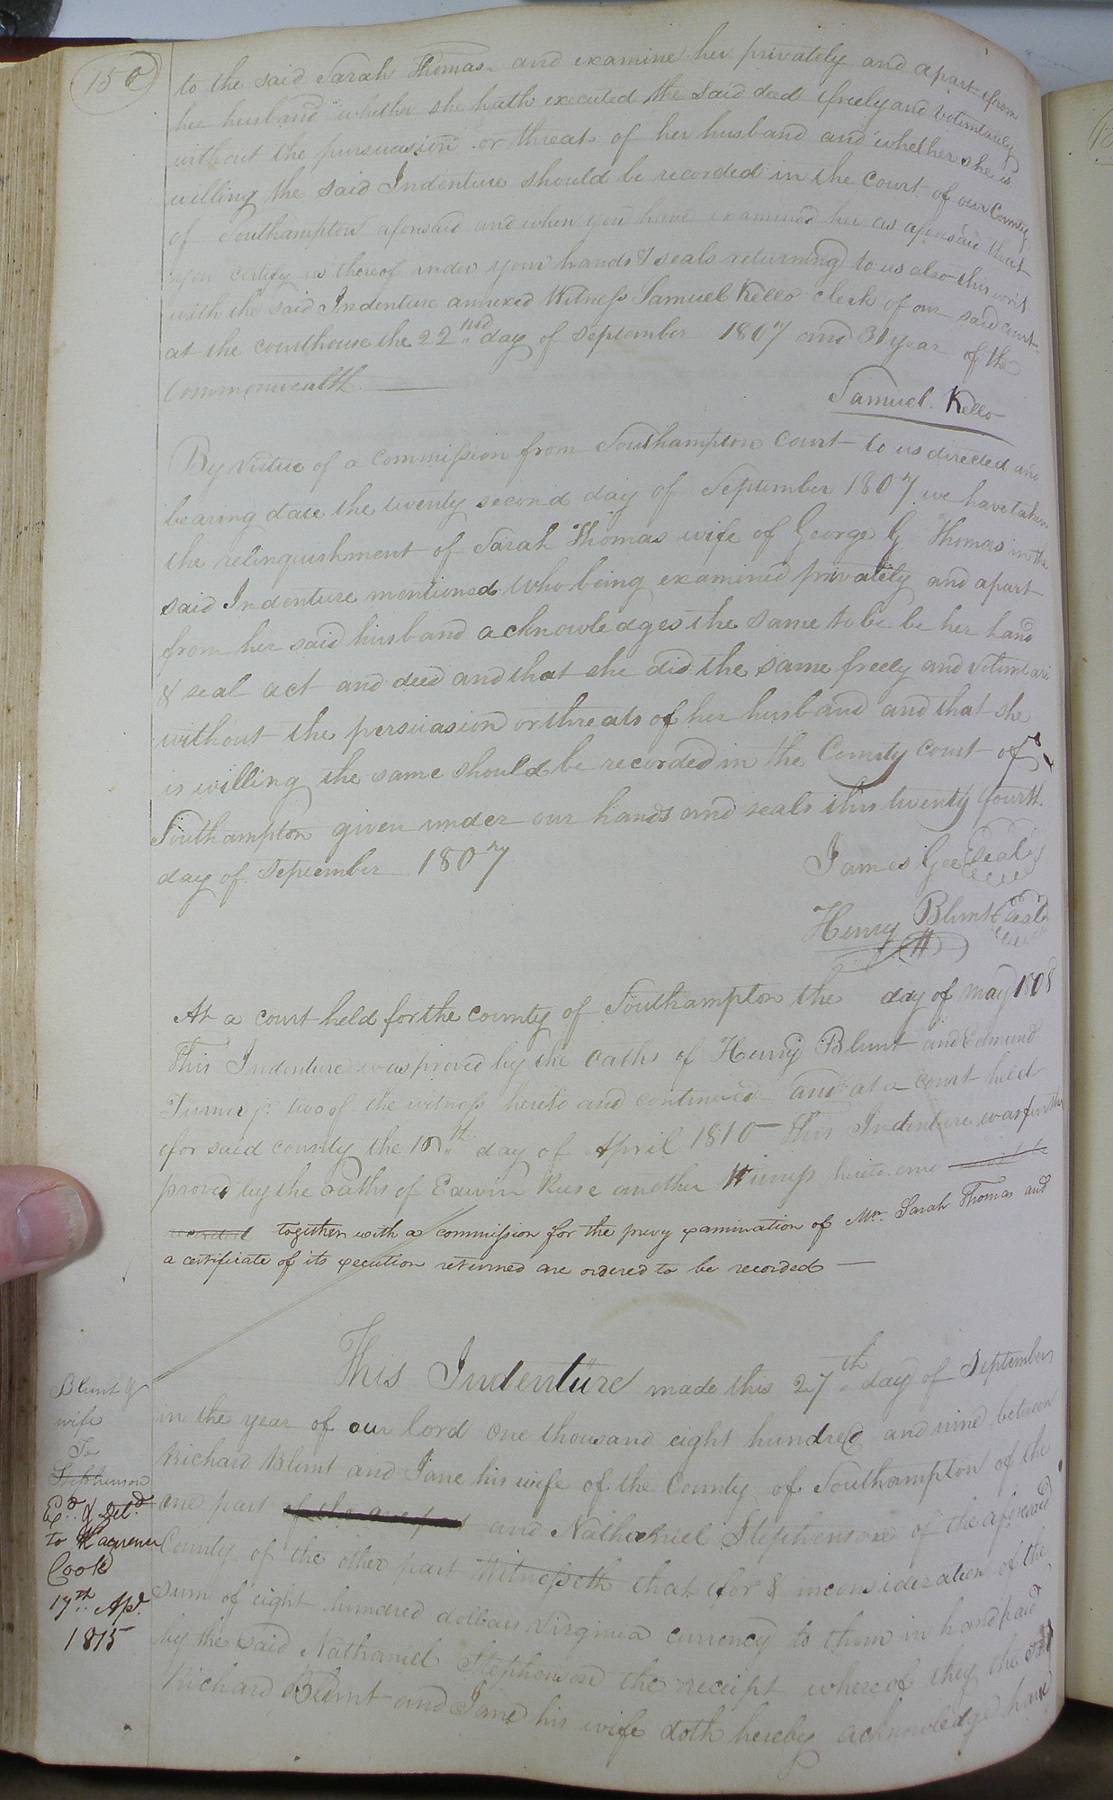 150
to the said Sarah Thomas and examine her privately and apart from
her husband whether she hath executed the said deed freely and voluntarily
without the pursuasion or threats of her husband and whether she is
willing the said Indenture should be recorded in the court of our County
of Southampton aforesaid and when you have examined her as aforesaid that
you certify us thereof under your hands & seals returning to us also this writ
with the said Indenture annexed Witness Samuel Kello clerk of our said court
at the courthouse the 22nd day of September 1807 and 31 year of the
Commonwealth
Samuel Kello
By Virtue of a commission from Southampton Court to us directed and
bearing date the twenty second day of September 1807 we have taken
the relinquishment of Sarah Thomas wife of George G Thomas in the
said Indenture mentioned who being examined privately and apart
from her said husband acknowledges the same to be be her hand
& seal act and deed and that she did the same freely and voluntari
without the persuasion or threats of her husband and that she
is willing the same should be recorded in the County Court of
Southampton given under our hands and seals this twenty fourth
day of September 1807
James Gee Seal
Henry Blunt Seal
At a court held for the county of Southampton the day of May 1808
This Indenture was proved by the oaths of Henry Blunt and Edmund
Turner jr two of the witness hereto and continued and at a court held
for said county the day of April 1810 This Indenture was further
proved by the Oaths of Edwin another hereto and
together with a commission for the privy examination of Mrs Sarah Thomas and
a certificate of its execution returned are ordered to be recorded
This Indenture made this 27th day of September
in the year of our lord one thousand eight hundred and nine between
Richard Blunt and Jane his wife of the County of Southampton of the
one part of the one part and Nathaniel Stephenson of the aforesaid
County of the other part Witnesseth that for & inconsideration of the
sum of eight hundred dollars Virginia currency to them in hand paid
by the said Nathaniel Stephenson the receipt whereof they the said
Richard Blunt and Jane his wife doth hereby acknowledge have
Blunt &
wife
To
Stephenson
Exd. & Deld
to
Cook
17th Apl.
1815